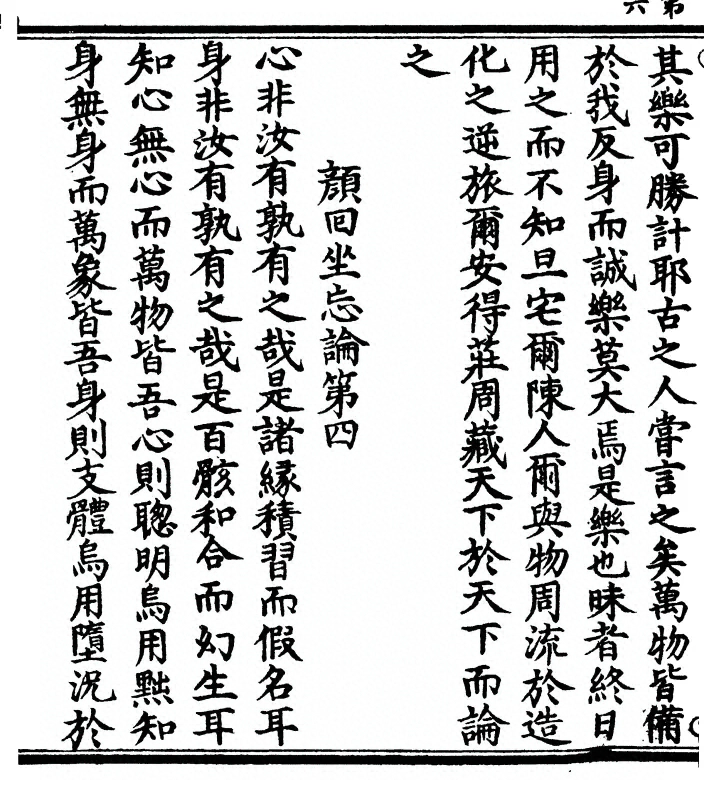 第六
其樂可勝計耶古之人嘗言之矣萬物皆備
於我反身而誠樂莫大焉是樂也昧者終日
用之而不知旦宅爾陳人爾與物周流於造
化之逆旅爾安得莊周藏天下於天下而論
之
顔回坐忘論第四
心非汝有孰有之哉是諸緣積習而假名耳
身非汝有孰有之哉是百骸和合而幻生耳
知心無心而萬物皆吾心則聰明烏用黜知
身無身而萬象皆吾身則支體烏用墮況於